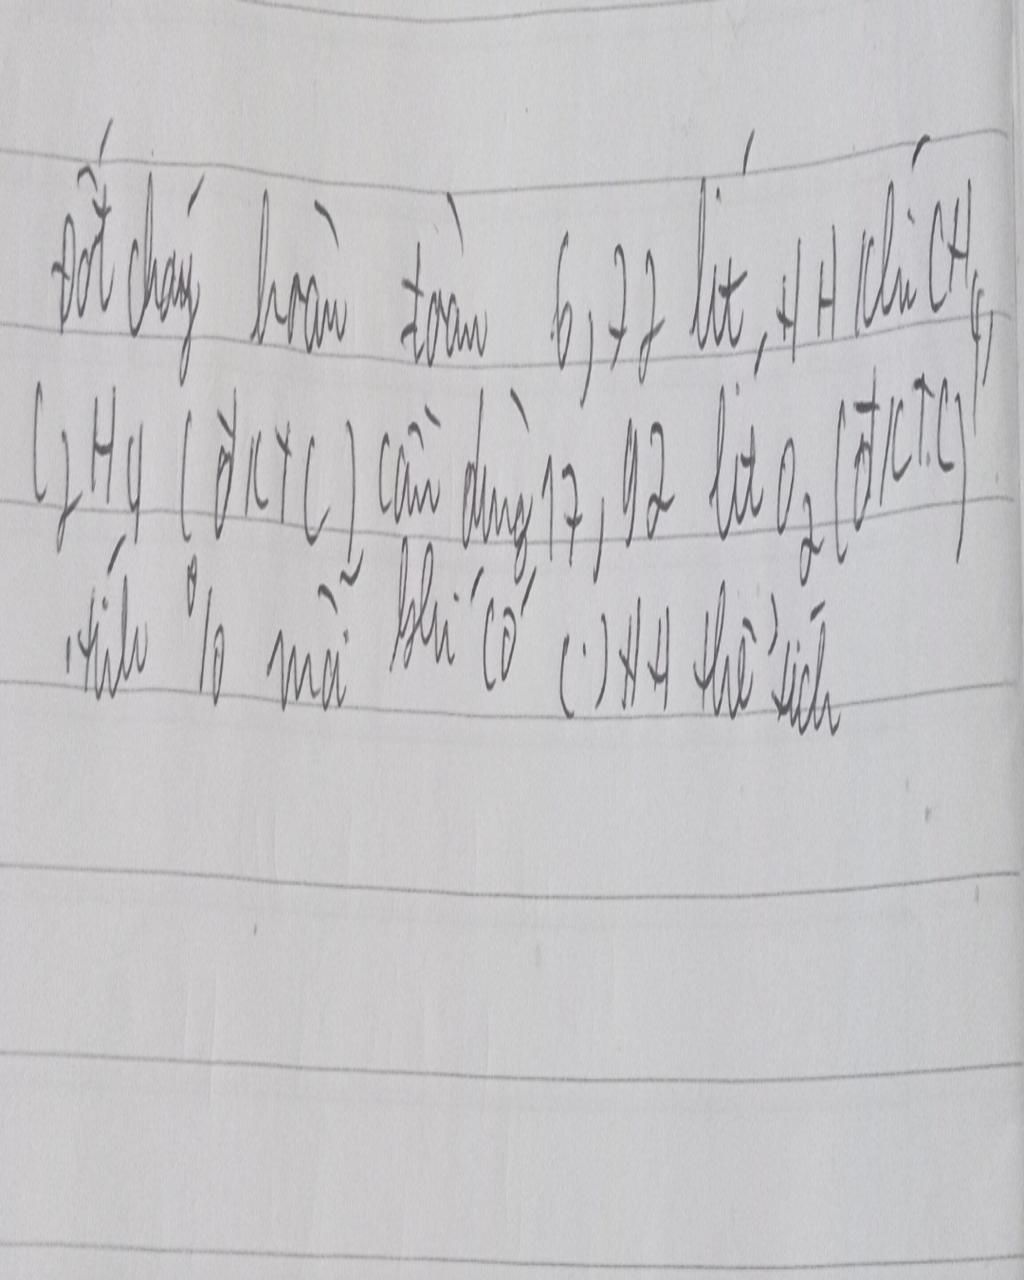 Đốt cháy hoàn toàn 6,72 lít, HH khí CH4,
C2H4 (đKTC) cần dùng 17,92 lít O2 (đKTC)
tính % mỗi khí có (.) HH thể tích